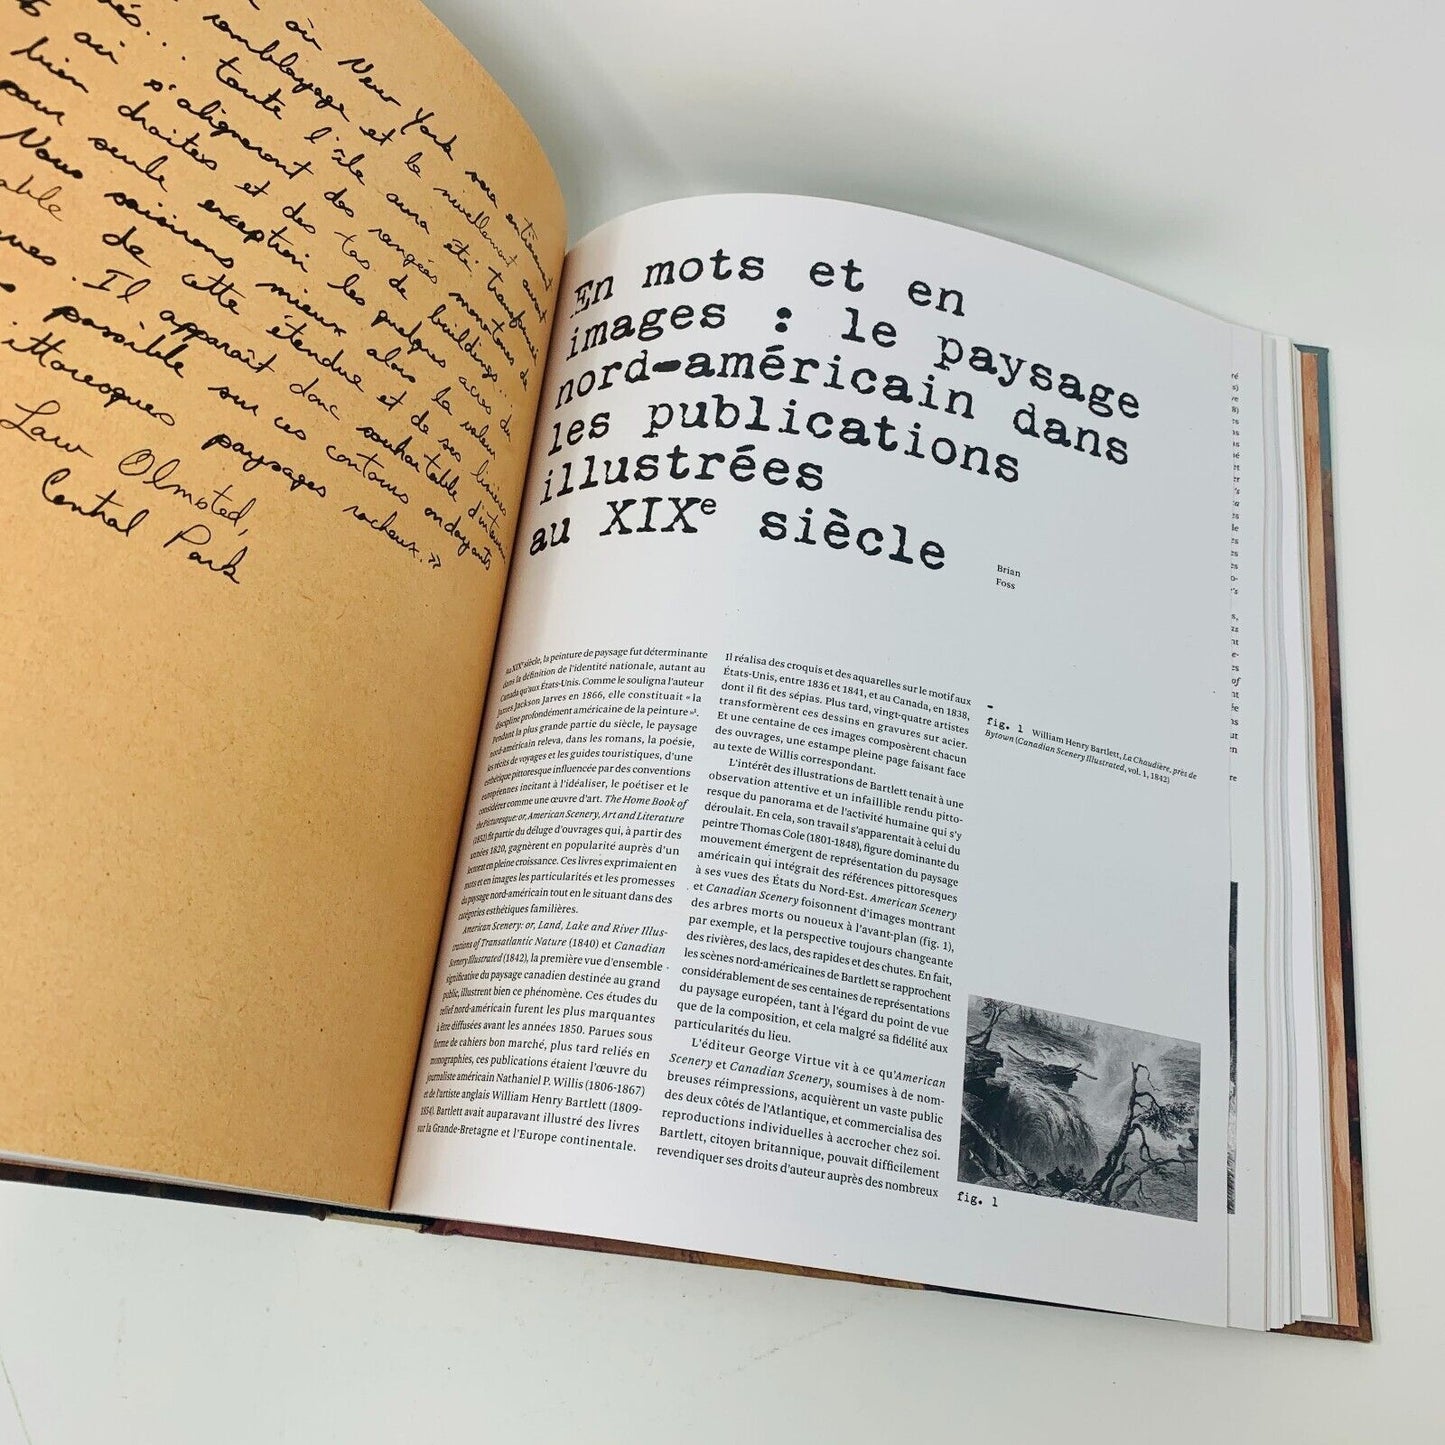 où New York sera entièrement
remblayage et le nivellement auront
toute l'île aura été transformée
s'aligneront des rangées monotones de
bien droites et des tas de buildings...
pour seule exception les quelques acres du
Nous saisirons mieux alors la valeur
de cette étendue et de ses lisières
Il apparaît donc souhaitable d'intervenir
possible sur ces contours ondoyants
ittoresques paysages rocheux. »
Law Olmsted,
Central Park
En mots et en
images : le paysage
nord-américain dans
les publications
illustrées
au XIXe siècle
Brian
Foss
Au XIXe siècle, la peinture de paysage fut déterminante
dans la définition de l'identité nationale, autant au
Canada qu'aux États-Unis. Comme le souligna l'auteur
James Jackson Jarves en 1866, elle constituait « la
discipline profondément américaine de la peinture »¹.
Pendant la plus grande partie du siècle, le paysage
nord-américain releva, dans les romans, la poésie,
les récits de voyages et les guides touristiques, d'une
esthétique pittoresque influencée par des conventions
européennes incitant à l'idéaliser, le poétiser et le
considérer comme une œuvre d'art. The Home Book of
the Picturesque: or, American Scenery, Art and Literature
(1852) fit partie du déluge d'ouvrages qui, à partir des
années 1820, gagnèrent en popularité auprès d'un
lectorat en pleine croissance. Ces livres exprimaient en
mots et en images les particularités et les promesses
du paysage nord-américain tout en le situant dans des
catégories esthétiques familières.
American Scenery: or, Land, Lake and River Illus-
trations of Transatlantic Nature (1840) et Canadian
Scenery Illustrated (1842), la première vue d'ensemble
significative du paysage canadien destinée au grand
public, illustrent bien ce phénomène. Ces études du
relief nord-américain furent les plus marquantes
à être diffusées avant les années 1850. Parues sous
forme de cahiers bon marché, plus tard reliés en
monographies, ces publications étaient l'œuvre du
journaliste américain Nathaniel P. Willis (1806-1867)
et de l'artiste anglais William Henry Bartlett (1809-
1854). Bartlett avait auparavant illustré des livres
sur la Grande-Bretagne et l'Europe continentale.
Il réalisa des croquis et des aquarelles sur le motif aux
États-Unis, entre 1836 et 1841, et au Canada, en 1838,
dont il fit des sépias. Plus tard, vingt-quatre artistes
transformèrent ces dessins en gravures sur acier.
Et une centaine de ces images composèrent chacun
des ouvrages, une estampe pleine page faisant face
au texte de Willis correspondant.
L'intérêt des illustrations de Bartlett tenait à une
observation attentive et un infaillible rendu pitto-
resque du panorama et de l'activité humaine qui s'y
déroulait. En cela, son travail s'apparentait à celui du
peintre Thomas Cole (1801-1848), figure dominante du
mouvement émergent de représentation du paysage
américain qui intégrait des références pittoresques
à ses vues des États du Nord-Est. American Scenery
et Canadian Scenery foisonnent d'images montrant
des arbres morts ou noueux à l'avant-plan (fig. 1),
par exemple, et la perspective toujours changeante
des rivières, des lacs, des rapides et des chutes. En fait,
les scènes nord-américaines de Bartlett se rapprochent
considérablement de ses centaines de représentations
du paysage européen, tant à l'égard du point de vue
que de la composition, et cela malgré sa fidélité aux
particularités du lieu.
L'éditeur George Virtue vit à ce qu'American
Scenery et Canadian Scenery, soumises à de nom-
breuses réimpressions, acquièrent un vaste public
des deux côtés de l'Atlantique, et commercialisa des
reproductions individuelles à accrocher chez soi.
Bartlett, citoyen britannique, pouvait difficilement
revendiquer ses droits d'auteur auprès des nombreux
–
fig. 1 William Henry Bartlett, La Chaudière, près de
Bytown (Canadian Scenery Illustrated, vol. 1, 1842)
fig. 1